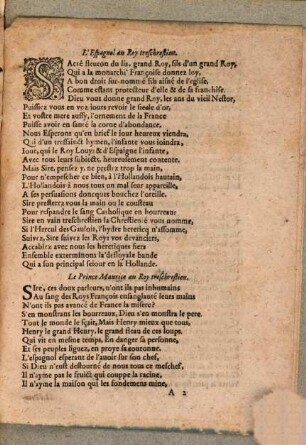 L'Espagnol au Roy treschrestien.
SAcré fleuron du lis, grand Roy, fils d'un grand Roy,
Qui a la monarchi' Françoise donnez loy,
A bon droit sur-nommé fils aisné de l'eglise,
Comme estant protecteur d'elle & de sa franchise.
Dieu vous donne grand Roy, les ans du vieil Nestor,
Puissiez vous en voz iours revoir le siecle d'or,
Et vostre mere aussy, l'ornement de la France
Puisse avoir en santé la corne d'abondance,
Nous Esperons qu'en brief le iour heureux viendra,
Qu d'un tressainct hymen, l'infante vous ioindra,
Iour, qui le Roy Louys & d'Espaigne l'infante,
Avec tous leurs subiects, heureusement contente.
Mais Sire, pensez y, ne prestez trop la main,
Pour n'empescher ce bien, à l'Hollandois hautain,
L'Hollandois à nous tous un mal sour appareille,
A ses persuasions doncques bouchez l'oreille.
Sire presterez vous la main ou le cousteau
Pour respandre le sang Catholique en bourreau
Sire en vain treschrestien la Chrestienté vous nomme,
Si l'Hercul des Gaulois, l'hydre heretieq n'assomme,
Suivez, Sire suivez les Roys voz devanciers,
Accablez avec nous les heretiques fiers
Ensemble exterminons la desloyale bande
Qui a son principal seiour en la Hollande.
Le Prince Maurice au Roy treschrestien.
SIre, ces doux parleurs, n'ont ils pas inhumains
Au sang des Roys François ensanglanté leurs mains
N'ont ils pas avancé de France la misere?
S'en monstrans les bourreaux, Dieu s'en monstra le pere.
Tout le monde le sçait, Mais Henry mieux que tous,
Henry le grand Henry, le grand fleau de ces loups.
Qui vit en mesme temps, En danger sa personne,
Et ses peuples liguez, en proye sa couronne.
L'espagnol esperant de l'avoir sur son chef,
Si Dieu n'eust destourné de nous tous ce meschef,
Il n'ayme pas le fruict qui couppe la racine,
Il n'ayme la maison qui les fondemens mine,
A 2